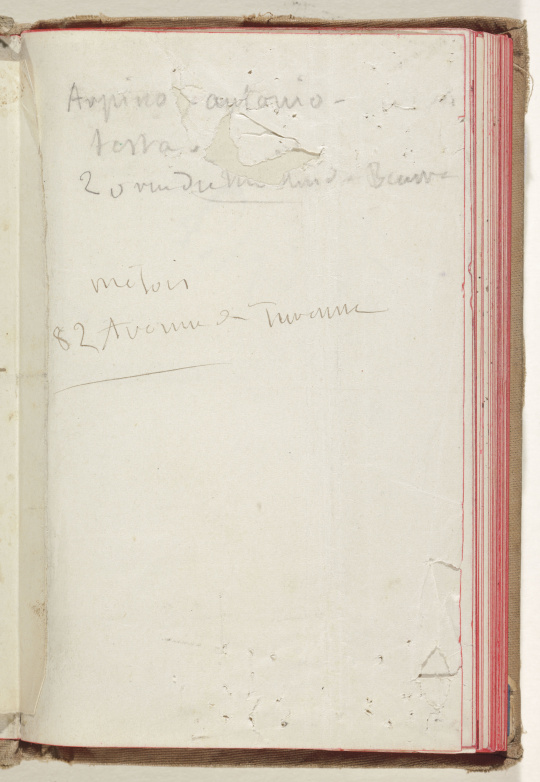 Arpino antonio -
testa.
20 rue du
metois
82 Avenue de Turenne